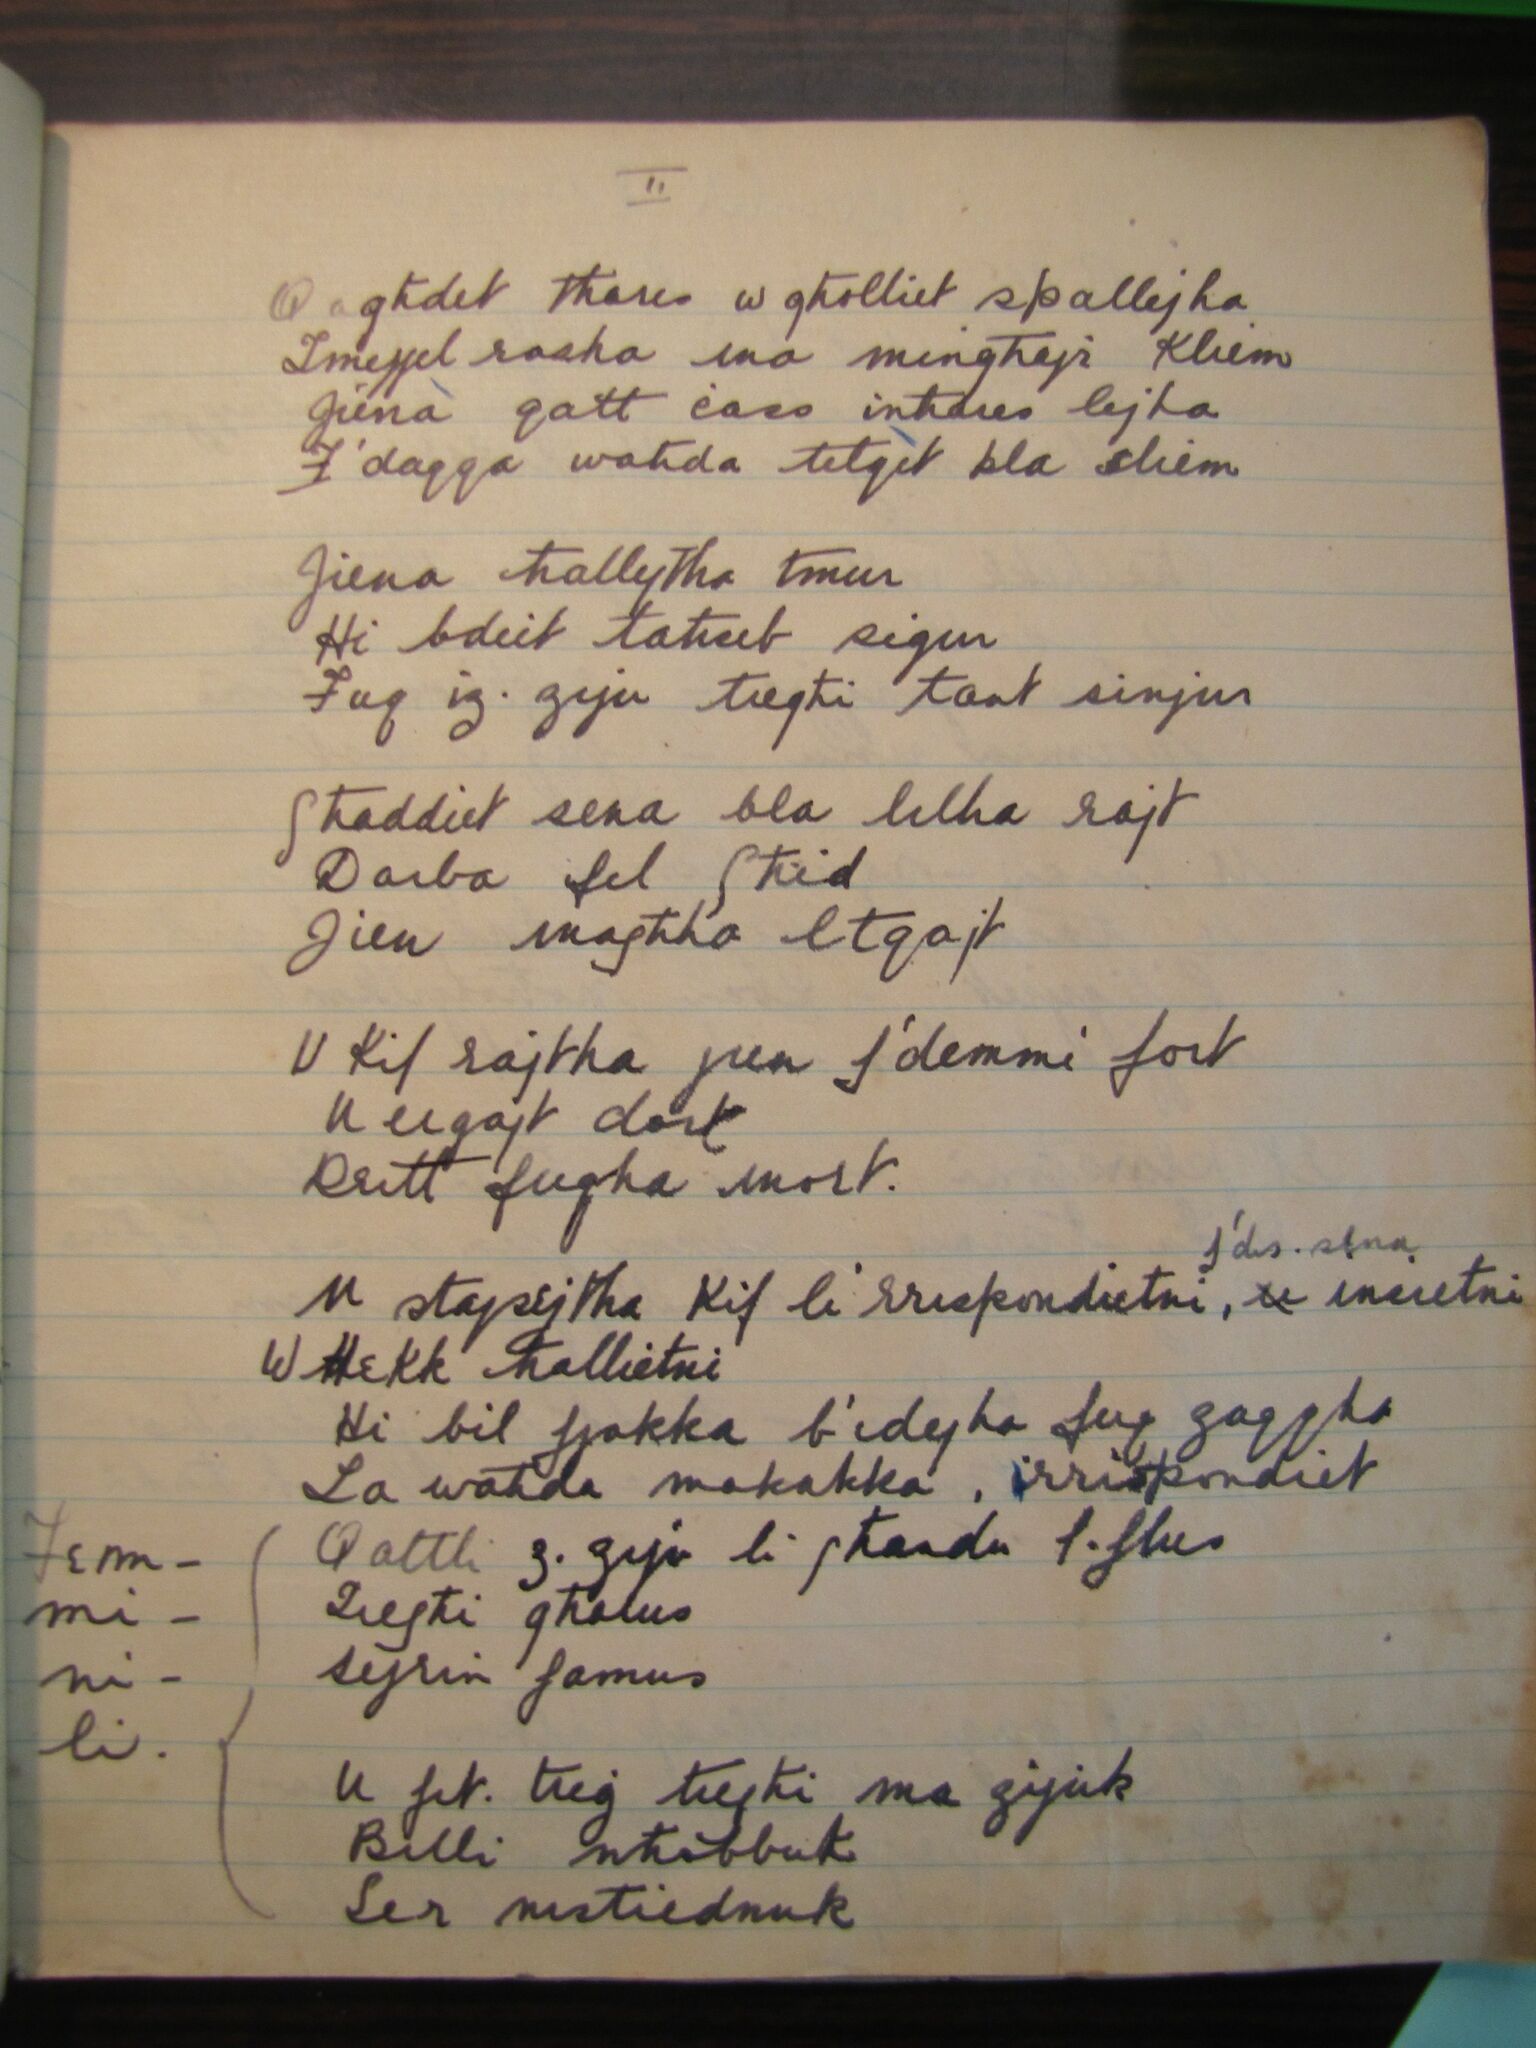 II
Qaghdet thares w għolliet spallejha
Imejjel rasha ma mingħajr Kliem
Jiena qatt ċass inħares lejha
F'daqqa waħda telqet bla sliem
Jiena ħallejtha tmur
Hi bdiet taħseb sigur
Fuq iz. ziju tiegħi tant sinjur
Għaddiet sena bla lilha rajt
Darba fel Għid
Jien magħha ltqajt
U Kif rajtha jien f'demmi fort
U ergajt dort
Ksitt fuqha mort.
f'dis. sena
U staqsejtha Kif li rrispondietni, insietni
W Hekk ħallietni
Hi bil fjakka b'idejha fuq zaqqha
Ta waħda makakka, irrispondiet
Qattli z. ziju li għandu l. flus
Tiegħi għarus
sejrin famus
U fit. trieq tiegħi ma zijuk
Billi nħobbuk
Ser nistiednuk
Fem-
mi-
ni-
li.